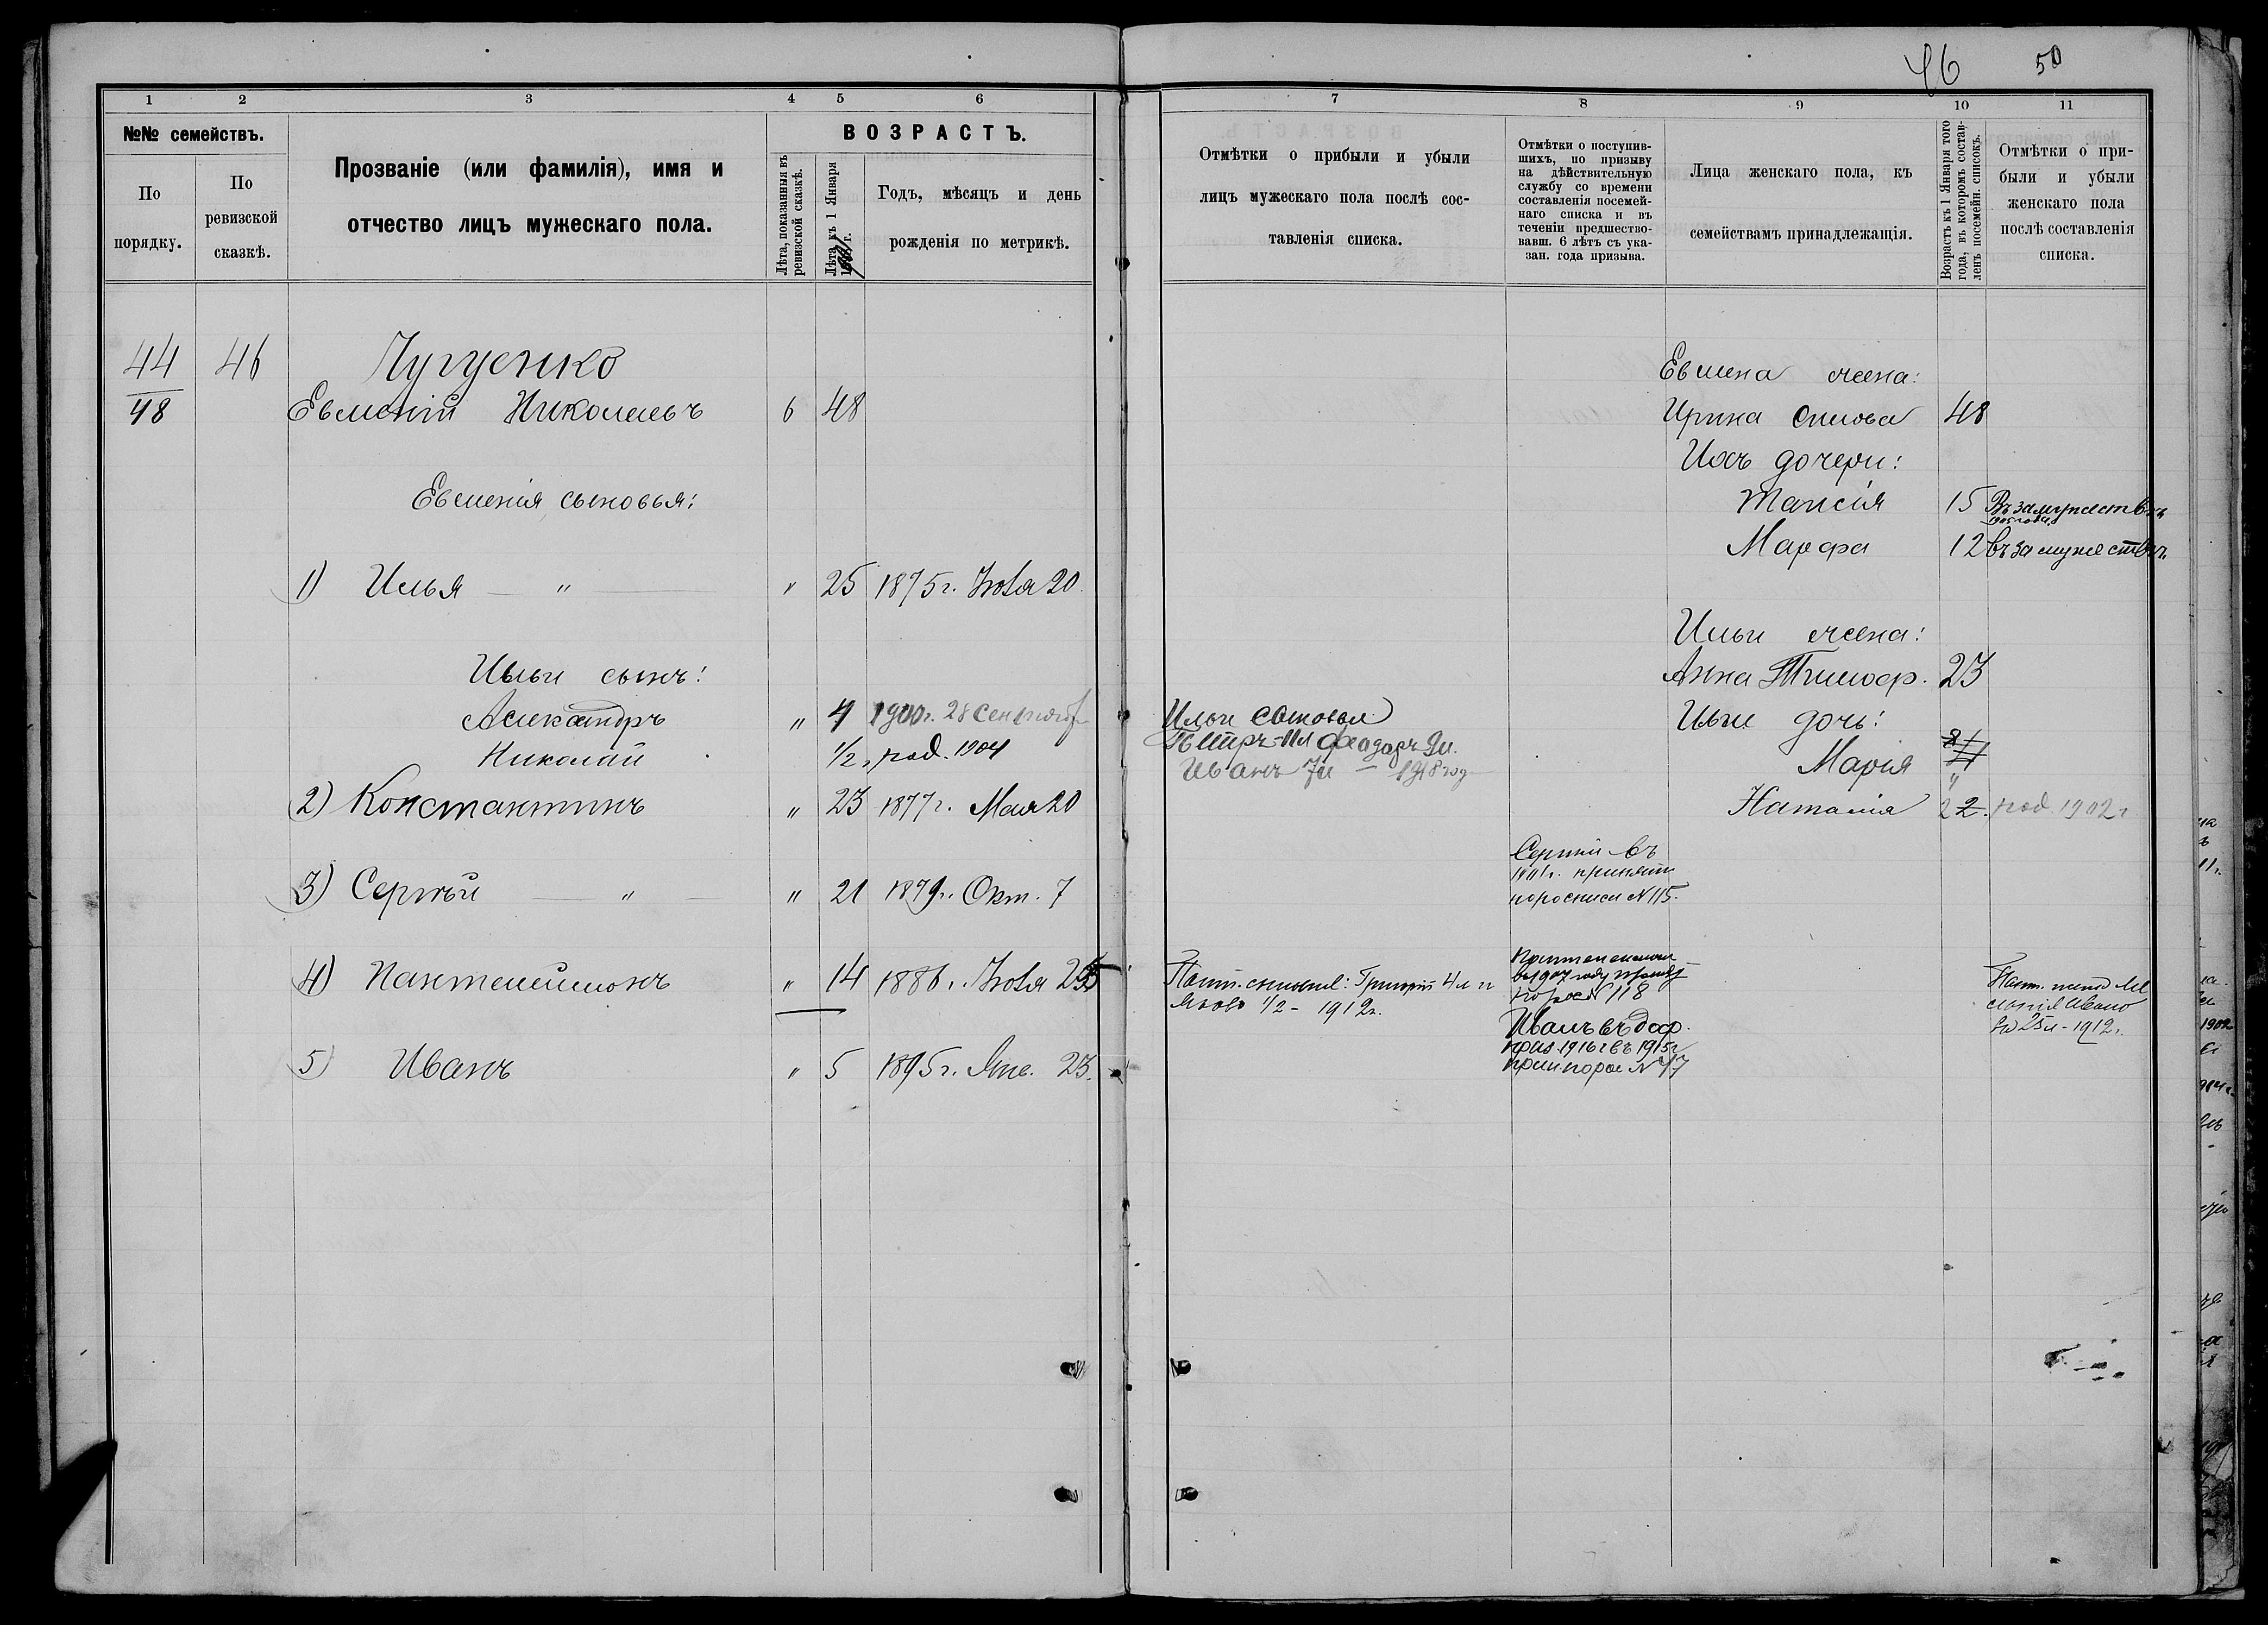 46 50
1 2 3 4 5 6
№№ семействъ.
По порядку.
По ревизской сказкѣ.
Прозваніе (или фамилія), имя и
отчество лицъ мужескаго пола.
ВОЗРАСТЪ.
Лѣта, показанныя въ
ревизской сказкѣ.
Лѣта къ 1 Января
г.
Годъ, мѣсяцъ и день
рожденія по метрикѣ.
44 46
48 Евменій Николаевъ 6 48
Евменія сыновья:
1) Илья — " " 25 1875 г. Іюля 20
Ильи сынъ:
Александръ " 4 1900 г. 28 Сентября
Николай 1/2, род. 1904
2) Константинъ " 23 1877 г. Мая 20
3) Сергѣй — " — " 21 1879 г. Окт. 7
4) Пантелеймонъ " 14 1886 г. Іюля 25
5) Иванъ " 5 1895 г. Янв. 23.
7 8 9 10 11
Отмѣтки о прибыли и убыли
лицъ мужескаго пола послѣ сос-
тавленія списка.
Отмѣтки о поступив-
шихъ, по призыву
на дѣйствительную
службу со времени
составленія посемей-
наго списка и въ
теченіи предшество-
вавш. 6 лѣтъ съ ука-
зан. года призыва.
Лица женскаго пола, къ
семействамъ принадлежащія.
Возрастъ къ 1 Января того
года, въ которомъ состав-
ленъ посемейн. списокъ.
Отмѣтки о при-
были и убыли
женскаго пола
послѣ составленія
списка.
Евмена жена:
Ирина 48
Ихъ дочери:
Таисія 15 Въ замужествѣ
Марфа 12 въ замужествѣ
Ильи жена:
Анна Тимоф. 23
Ильи сыновья
Ильи дочь:
Иванъ 7 л — 1918 год
Марія
Наталія 2 2. род. 1902 г
Сергѣй въ
1901 г. принятъ
по росписи N 115.
Пант. сыновья: Григорій 4 л и
1/2 - 1912 г.
Пантелеимон
в 1907 году
N 118
Иванъ въ
приз. 1916 г въ 1915 г
N 47
Пант. жена
Ивано
25 л - 1912 г.